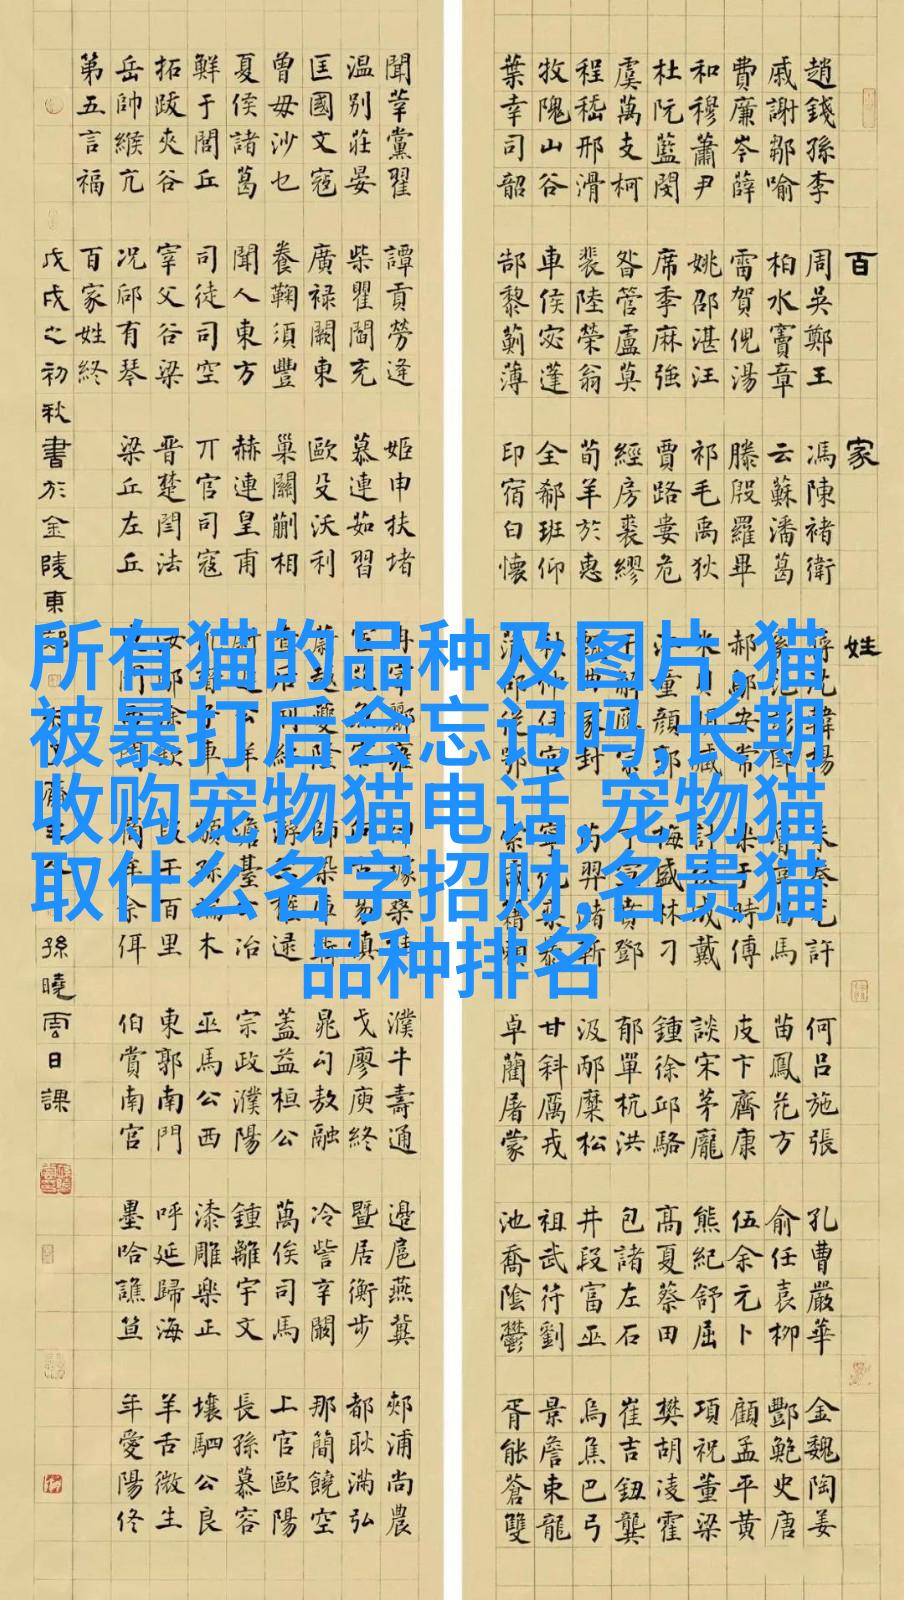 百家姓
趙錢孫李 周吳鄭王 馮陳褚衛 韓楊 許 何呂施張 孔曹嚴華 金魏陶姜
戚謝鄒喻 柏水竇章 云蘇潘葛 馬 苗鳳花方 俞任袁柳 酆鮑史唐
費廉岑薛 雷賀倪湯 滕殷羅畢 郝 安常 于時傅 皮卞齊康 伍余元卜 顧孟平黃
和穆蕭尹 姚邵湛汪 祁毛禹狄 米貝 臧 計 成戴 談宋茅龐 熊紀舒屈 項祝董梁
杜阮藍閔 席季麻強 賈路婁危 童顏郭 梅盛林刁 鍾徐邱駱 高夏蔡田 樊胡凌霍
虞萬支柯 昝管盧莫 經房裘繆 解應宗 丁 鄧 郁單杭洪 包諸左石 崔吉鈕龔
程嵇邢滑 裴陸榮翁 荀羊於惠 家封 羿 靳 汲邴糜松 井段富巫 烏焦巴弓
牧隗山谷 車侯宓蓬 全郗班仰 仲伊宮 寧 甘斜厲戎 祖武符劉 景詹束龍
葉幸司韶 郜黎薊薄 印宿白懷 從鄂 卓藺屠蒙 池喬陰鬱 胥能蒼雙
聞莘黨翟 譚貢勞逄 姬申扶堵 冉宰酈雍 璩桑 濮牛壽通 邊扈燕冀 郟浦尚農
温別莊晏 柴瞿閻充 慕連茹習 容 易慎 戈廖庾終 暨居衡步 都耿滿弘
匡國文寇 廣祿闕東 歐殳沃利 越夔隆 師 晁勾敖融 冷訾辛闞 那簡饒空
曾毋沙乜 養鞠須豐 巢關蒯相 游 逯 蓋益桓公 萬俟司馬 上官歐陽
夏侯諸葛 聞人東方 赫連皇甫 公羊 臺 冶 宗政濮陽 鍾離宇文 長孫慕容
鮮于閭丘 司徒司空 亓官司寇 子車 孫 木 巫馬公西 漆雕樂正 壤駟公良
拓跋夾谷 宰父谷梁 晉楚閆法 干百里 東郭南門 呼延歸海 羊舌微生
岳帥緱亢 況郈有琴 梁丘左丘 佴 伯賞南宮 墨哈譙笪 年愛陽佟
第五言福 百家姓終
戊戌之初秋書於金陵東郊 孫曉雲日課
所有猫的品种及图片,猫
被暴打后会忘记吗,长期
收购宠物猫电话,宠物猫
取什么名字招财,名贵猫
品种排名